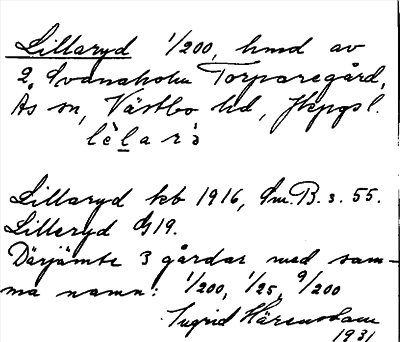 Lillaryd 1/200, hmd av
2 Svanaholm Torparegård,
Ås sn, Västbo hd, Jkpgs l.
lèlarò
Lillaryd kb 1916, Sm.B. s. 55.
Lilleryd G19.
Därjämte 3 gårdar med sam-
ma namn: 1/200, 1/25, 9/200
Ingrid
1931